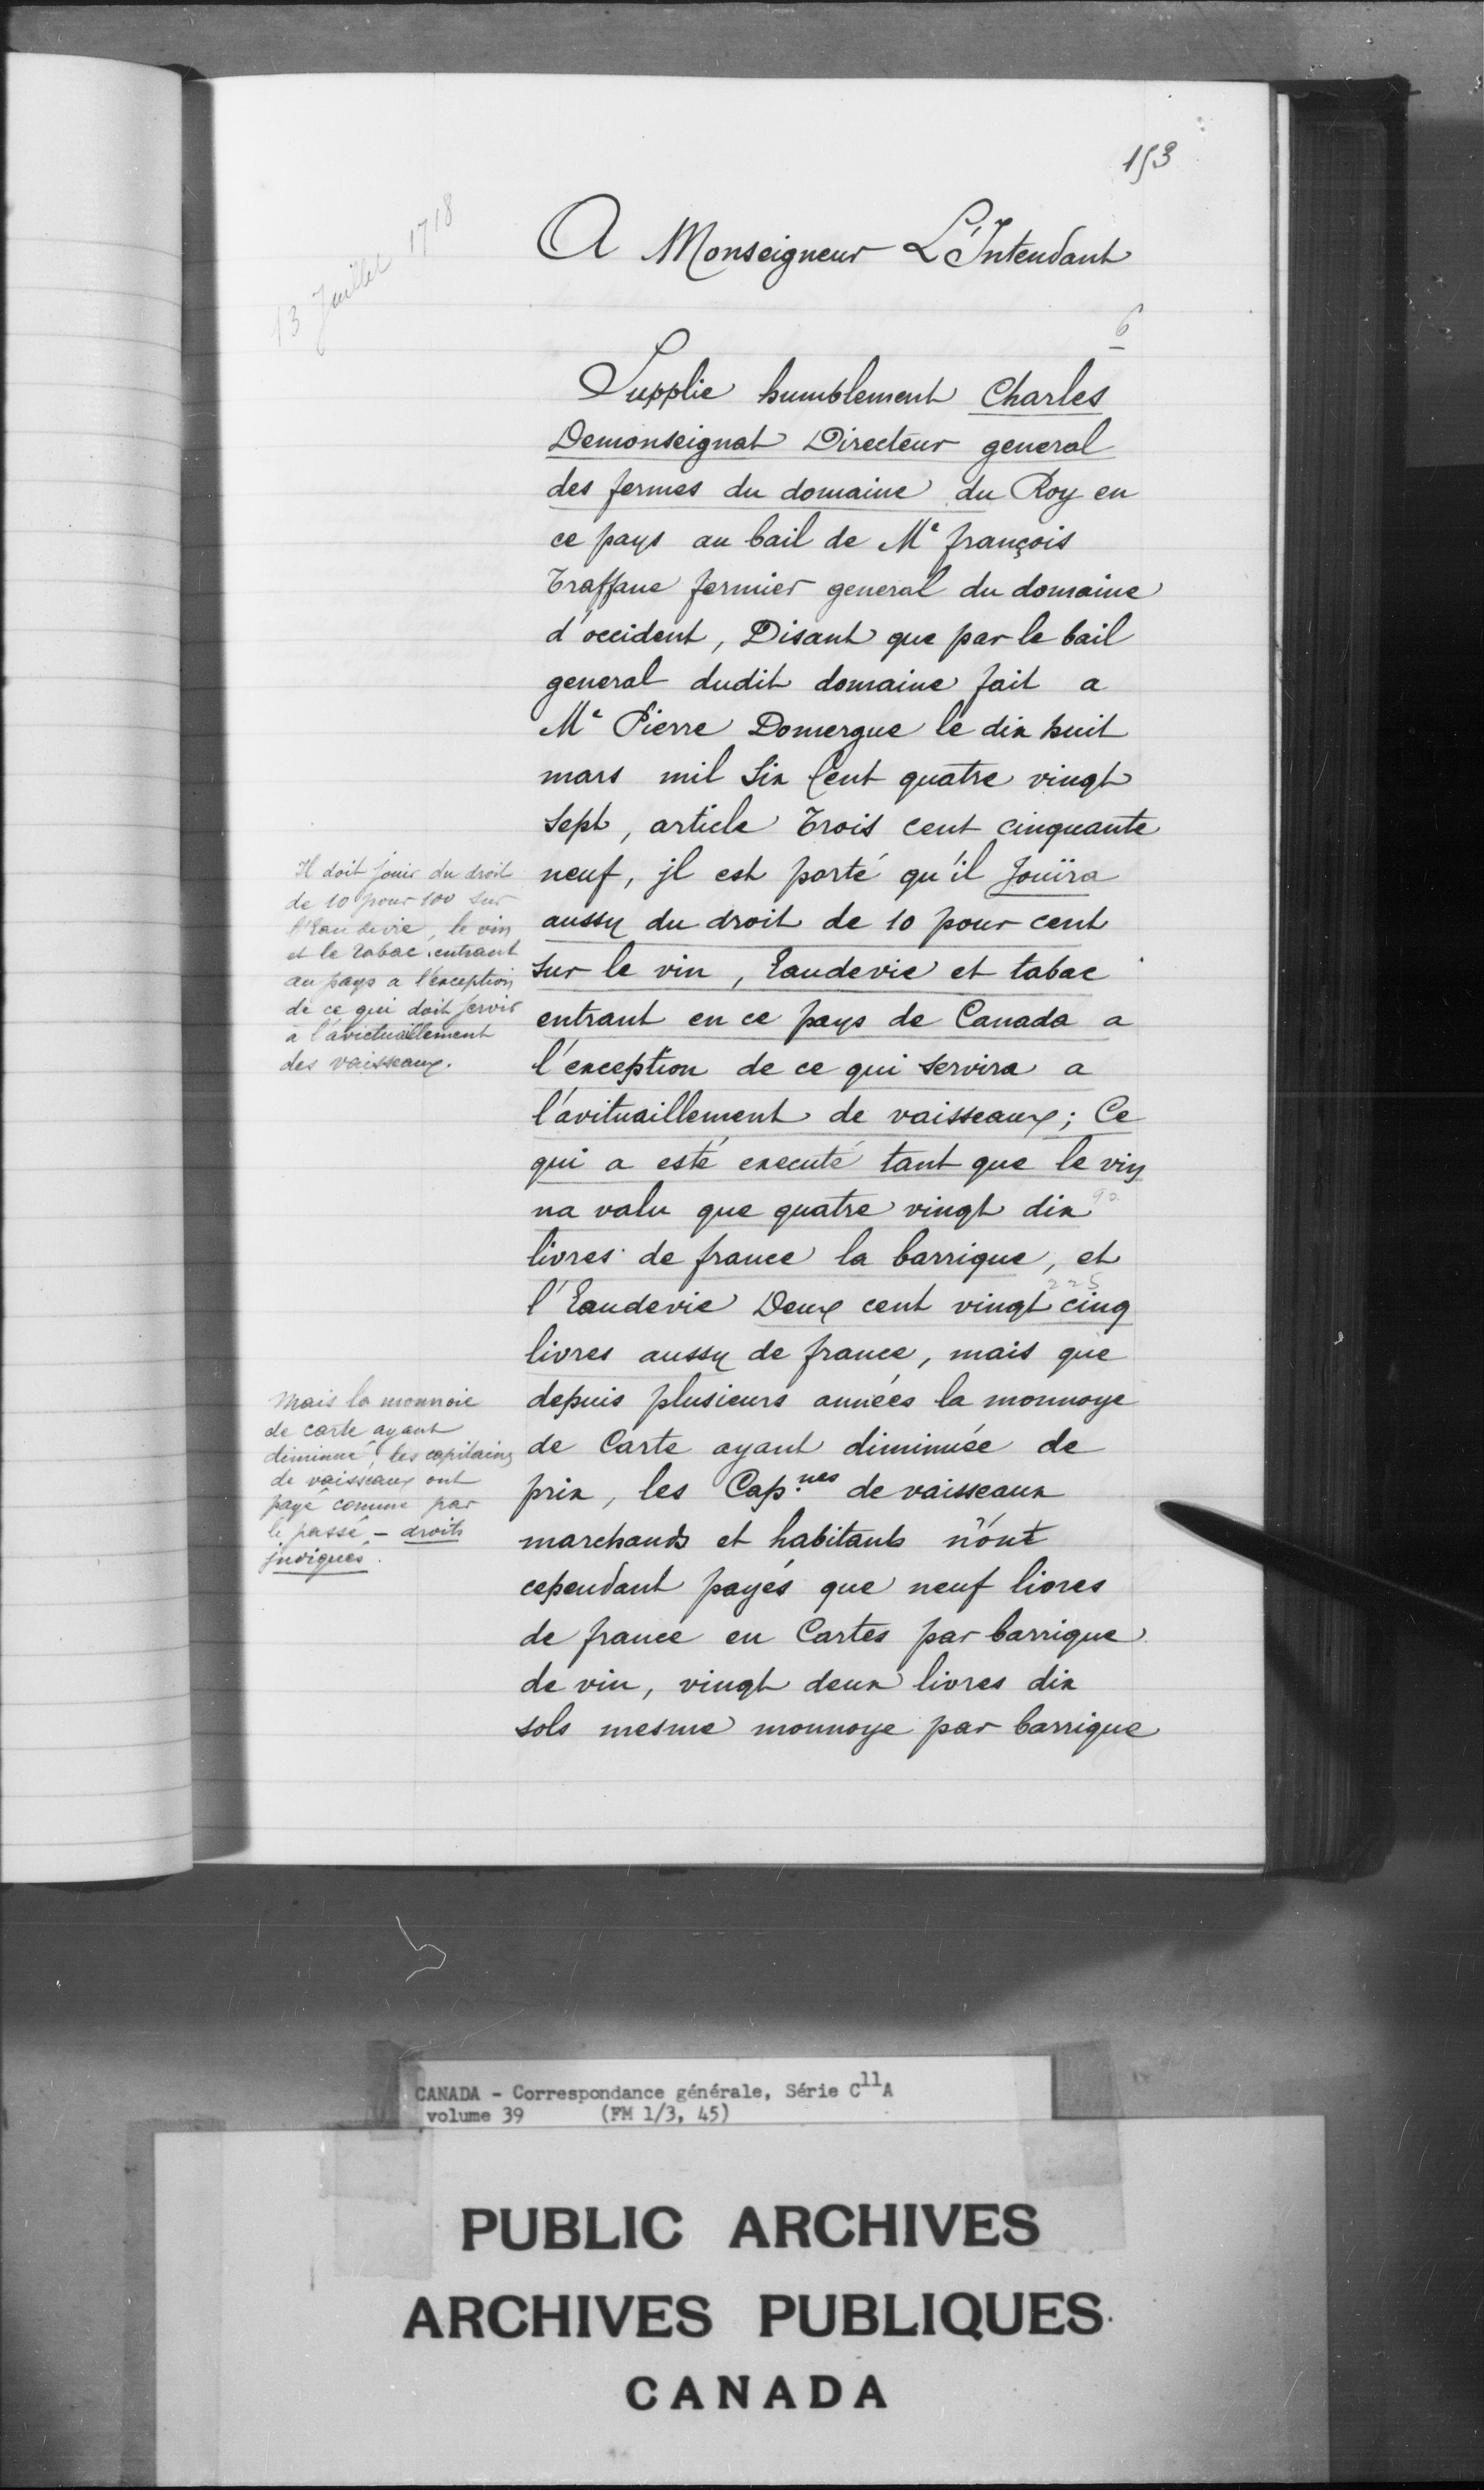 153
13 Juillet 1718
A Monseigneur L'Intendant
6
Supplie humblement Charles
Demonseignat Directeur general
des fermes du domaine du Roy en
ce pays au bail de Me françois
Traffane fermier general du domaine
d'occident, Disant que par le bail
general dudit domaine fait a
Me Pierre Domergue le dix huit
mars mil Six Cent quatre vingt
Sept, article Trois cent cinquante
neuf, jl est porté qu'il Jouira
aussy du droit de 10 pour cent
Sur le vin, Eaudevie et tabac
entrant en ce pays de Canada a
l'exception de ce qui servira a
l'avituaillement de vaisseaux; Ce
qui a esté executé tant que le vin
na valu que quatre vingt dix 90
livres de france la barrique, et
225
l'Eaudevie Deux cent vingt cinq
livres aussy de france, mais que
depuis plusieurs années la monnoye
de Carte ayant diminuée de
prix, les Cap.nes de vaisseaux
marchands et habitants n'ont
cependant payés que neuf livres
de france en Cartes par barrique
de vin, vingt deux livres dix
sols mesme monnoye par barrique
Il doit jouir du droit
de 10 pour 100 sur
l'Eau devie, le vin
et le tabac entrant
au pays a l'exception
de ce qui doit servir
a l'avictuaillement
des vaisseaux.
Mais la monnoie
de carte ayant
diminué, les capitaines
de vaisseaux ont
payé comme par
le passé - droits
indiqués.
CANADA - Correspondance générale, Série C11A
volume 39 (FM 1/3, 45)
PUBLIC ARCHIVES
ARCHIVES PUBLIQUES
CANADA